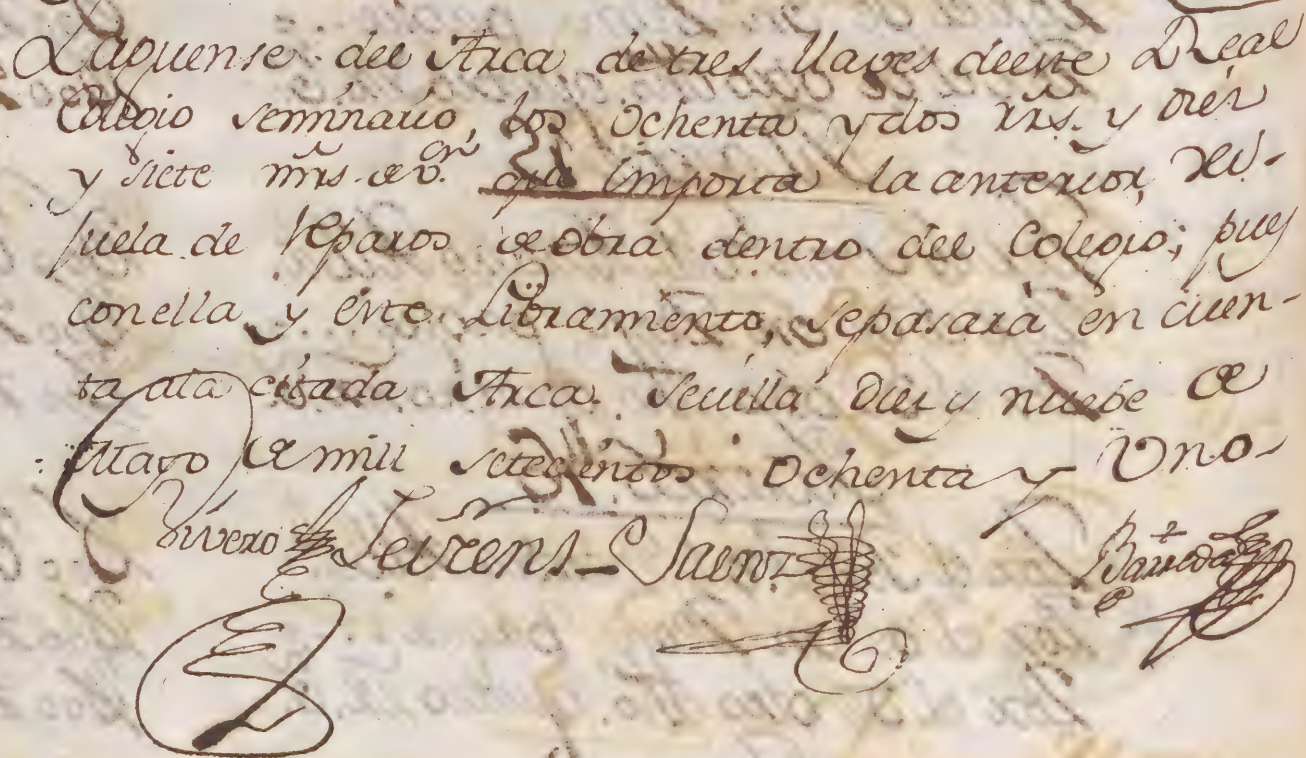 Paguense del Arca de tres llaves deeste Real
Colegio Seminario, los Ochenta y dos rrs. y diez
y siete mrs. de vn. que importa la anterior, rel-
juela de reparos de obra dentro del Colegio; pues
con ella y este Libramiento, se pasará en cuen-
ta ala citada Arca. Sevilla diez y nuebe de
Mayo de mill setecientos Ochenta y Uno
Vivero Saenz Barreda